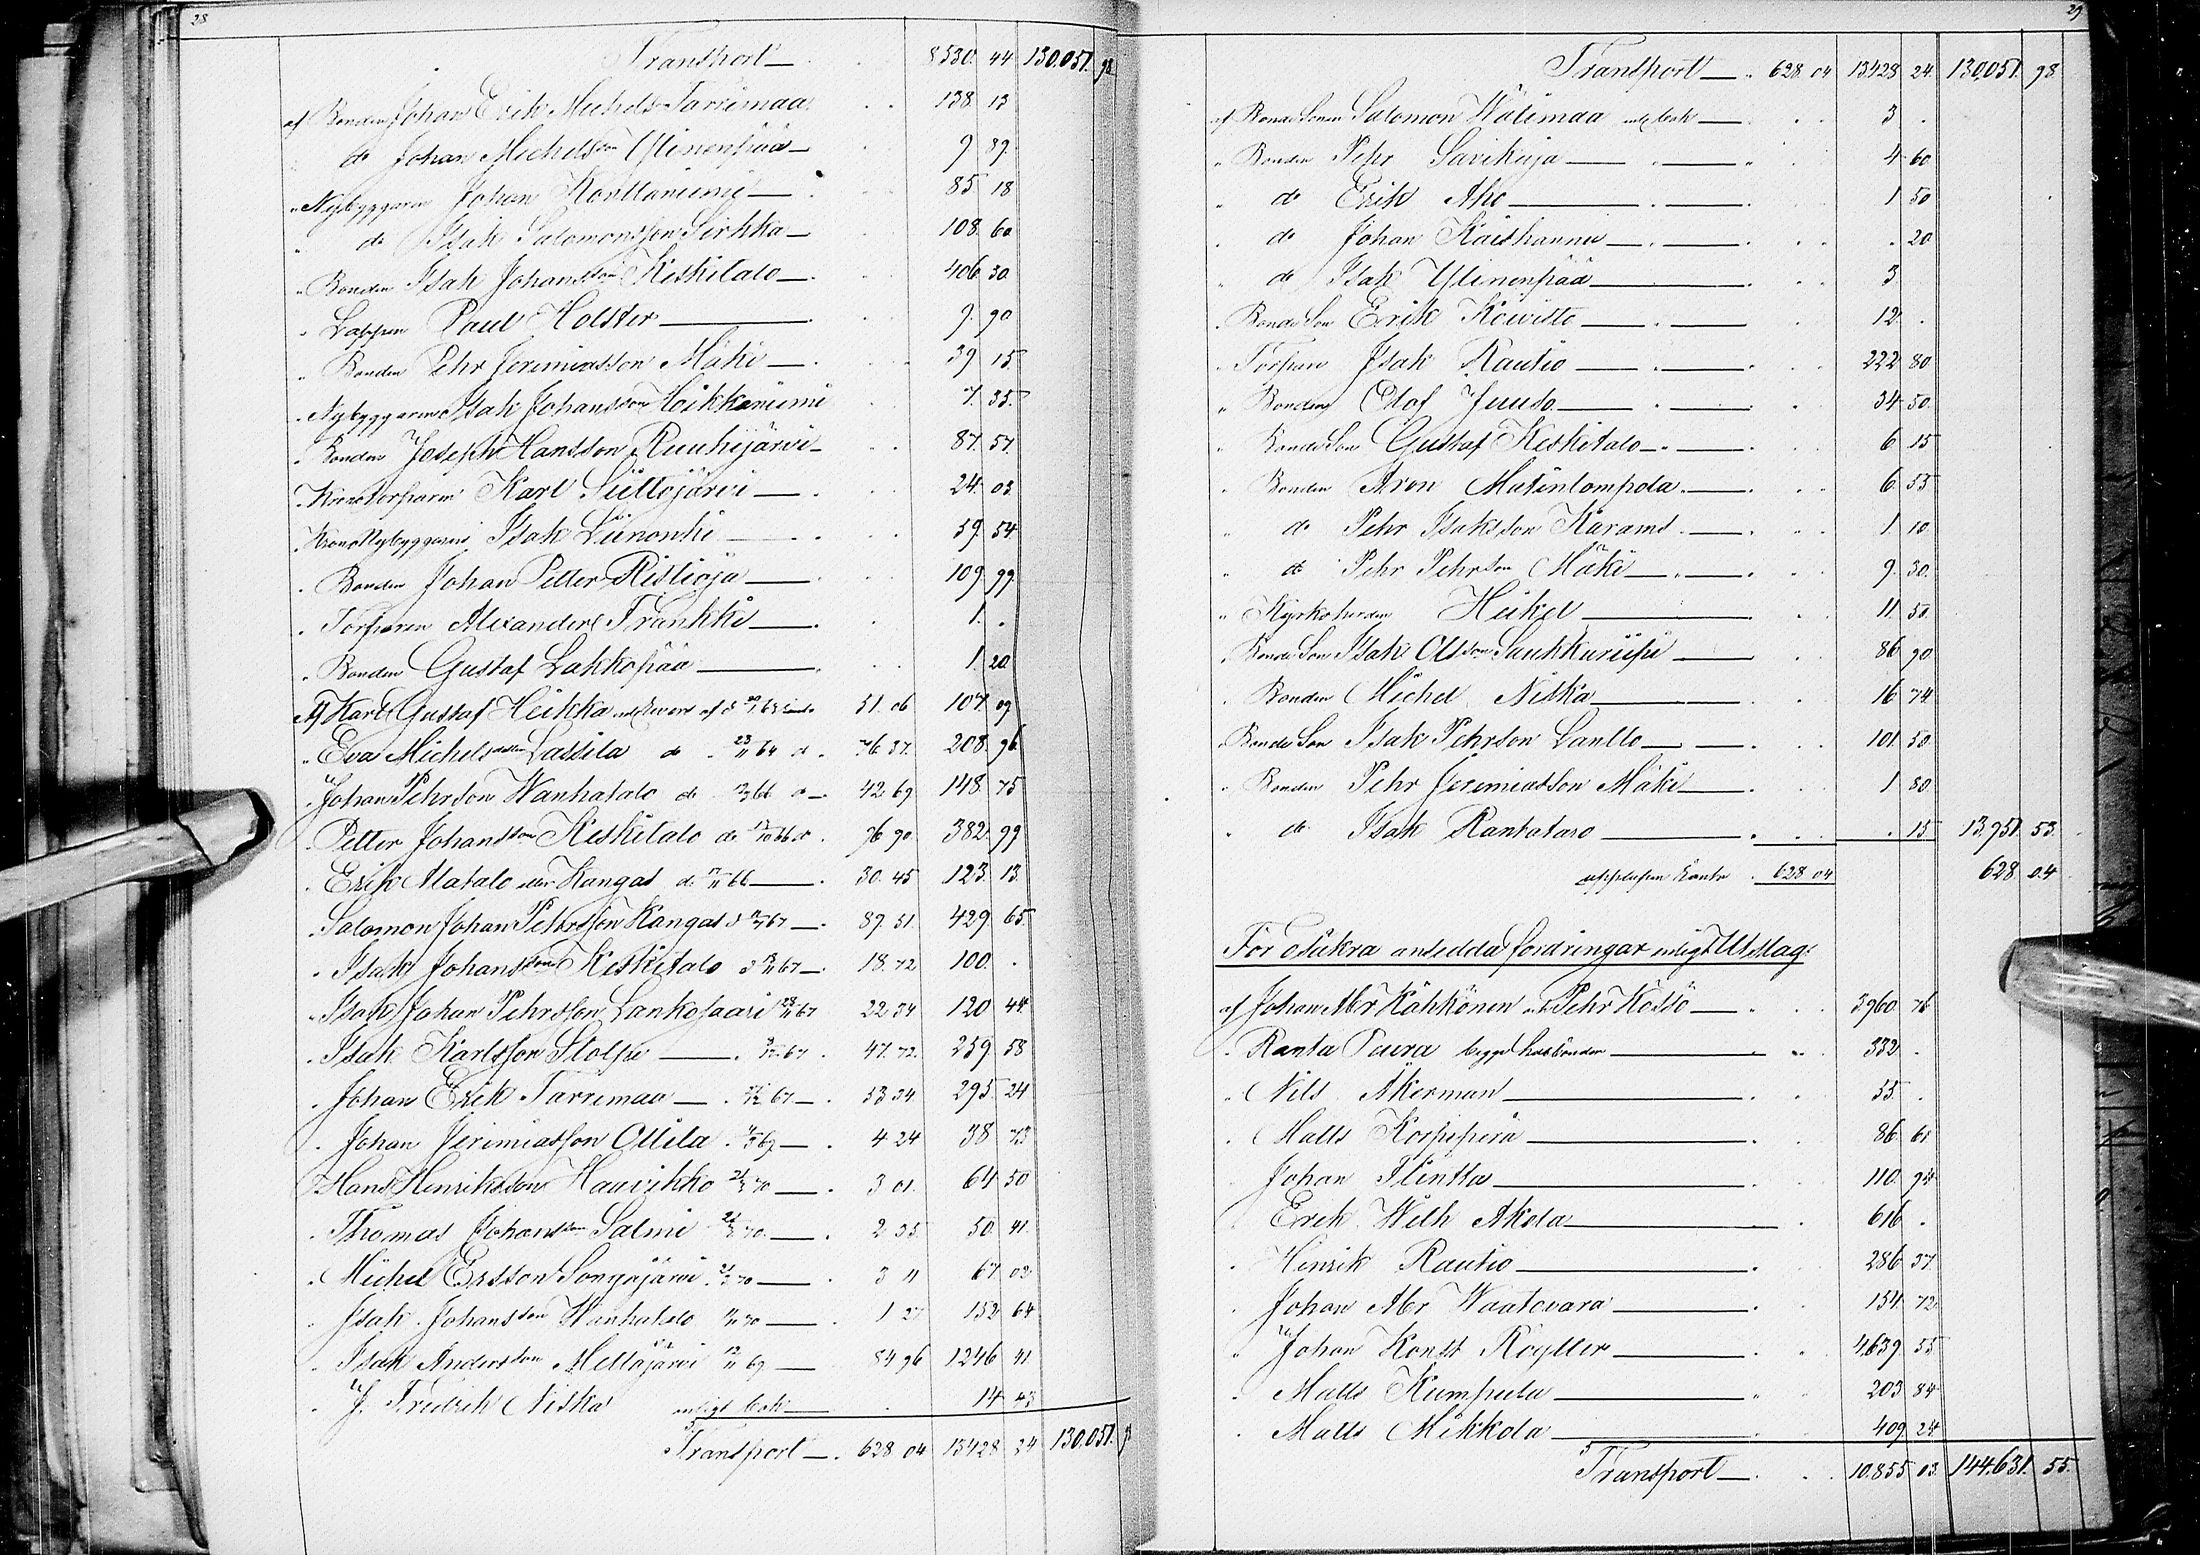 28
Transport 8530. 44 130,051. 98
af Bonden Johan Erik Michelsson Tarrimaa 138 13
" do Johan Michelsson Ylinenpää 9 89
" Nybyggaren Johan Konttaniemi 85 18
" do Isak Salomonsson Sirkka 108. 60
" Bonden Isak Johansson Keskitalo 406 30
" Lappen Paul Holster 9. 90
" Bonden Pehr Jeremiasson Mäki 39 15
" Nybyggaren Isak Johansson Hoikkaniemi 7. 35
" Bonden Joseph Hansson Ruuhijärvi 87 57
" Kronotorparen Karl Siettojärvi 24. 03
" Krononybyggaren Isak Liinonki 59. 54
" Bonden Johan Petter Ristioja 109. 99
" Torparen Alexander Frankki 1. .
" Bonden Gustaf Lakkapää 1. 20
Af Karl Gustaf Heikka 51. 06 107. 09
" Eva Michelsdotter Lassila do 23/11 64 d. 76 37. 208. 96
" Johan Pehrsson Wanhatalo do 66 42 69 148 75
" Petter Johansson Keskitalo do 66 76 90. 382. 99
" Erik Alatalo eller Kangas d. 66 30. 45 123. 13
" Salomon Johan Pehrsson Kangas 67 89. 51. 429 65
" Isak Johansson Keskitalo 67 18. 72 100. .
" Isak Johan Pehrsson Lankosaari 28/11 67 22 34 120 44
" Isak Karlsson Stolpe 67 47. 72. 259 58
" Johan Erik Tarrimaa 67 53 34 295 24
" Johan Jerimiasson Ollila 69 4 24 38 73
" Hans Henriksson Haurikko 70 3 01. 64 50
" Thomas Johansson Salmi 70 2 35 50. 41.
" Michel Ersson Songajärvi 70 3 11 67 02
" Isak Johansson Wanhatalo 70 1 27 152 64
" Isak Andersson Mellajärvi 12/11 69 84 96 1246 41
" J. Fredrik Niska enligt bok 14 43
Transport 628 04 13428 24 130,051. 98
29
Transport 628. 04 13428 24. 130,051. 98
af Bonde Sonen Salomon Wälimaa enl. bok 3 .
" Bonden Pehr Savikuja 4 60
" do Erik Aho 1 50
" do Johan Kaishannu . 20
" do Isak Ylinenpää 3
" Bonde Son Erik Koivisto 12 .
" Torparen Isak Rautio 222 80
" Bonden Olof Juuso 34 50
" Bonde Son Gustaf Keskitalo 6 15
" Bonden Aron Matinlompola 6 55
" do Pehr Isaksson Karams 1. 10
" do Pehr Pehrsson Mäki 9. 30
" Kyrkoherden Heikel 11. 50
" Bonde Son Isak Olsson Saukkoriipi 86 90
" Bonden Michel Niska 16 74
" Bonde Son Isak Pehrson Lantto 101 50
" Bonden Pehr Jeremiasson Mäki 1 80
" do Isak Rantataro . 15 13,951. 53.
upplupen Ränta 628 04 628. 04
För osäkra ansedda fordringar enligt Utslag:
af Johan Abr Kähkönen och Pehr Kossö 3,960. 76
" Ranta Paura begge husbönder 332 .
" Nils Åkerman 55 .
" Matts Korpiperä 86. 61
Johan Flinka 110 94
Erik Wilh Akola 616 .
" Henrik Rautio 286 37
" Johan Abr Waatovara 154 72
" Johan Konst Rogller 4,639 55
" Matts Kumpula 203 84
" Matts Mikkola 409 24
Transport 10,855 03 144,631. 55.